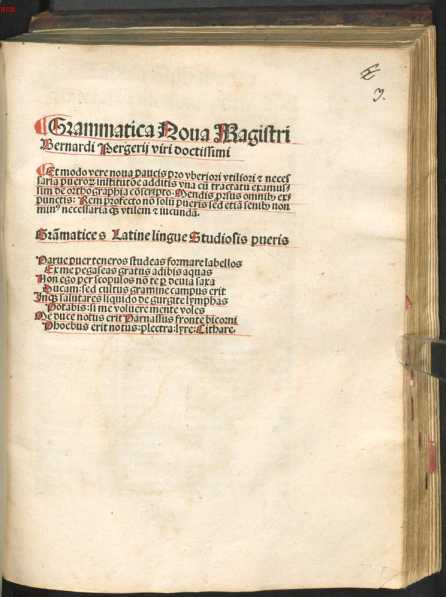 3.
Grammatica Noua Magistri
Bernardi Pergerij viri doctissimi
Et modo vere noua paucis pro vberiori vtiliori ꝛ neces
saria pueroꝝ institutōe additis vna cū tractatu examus-
sim de orthographia cōscripto: Mendis ꝓrsus omnibꝰ ex-
punctis: Rem profecto nō solū pueris sed etiā senibꝰ non
minꝰ necessariā qꝫ vtilem ꝛ iucundā.
Grāmatices Latine lingue Studiosis pueris
Parue puer teneros studeas formare labellos
Ex me pegaseas gratus adibis aquas
Non ego per scopulos nō te ꝑ deuia saxa
Ducam: sed cultus gramine campus erit
Inqꝫ salutares liquido de gurgite lymphas
Potabis: si me voluere mente voles
Me duce notus erit Parnassus fronte bicorni
Phoebus erit notus: plectra: lyre: Cithare.